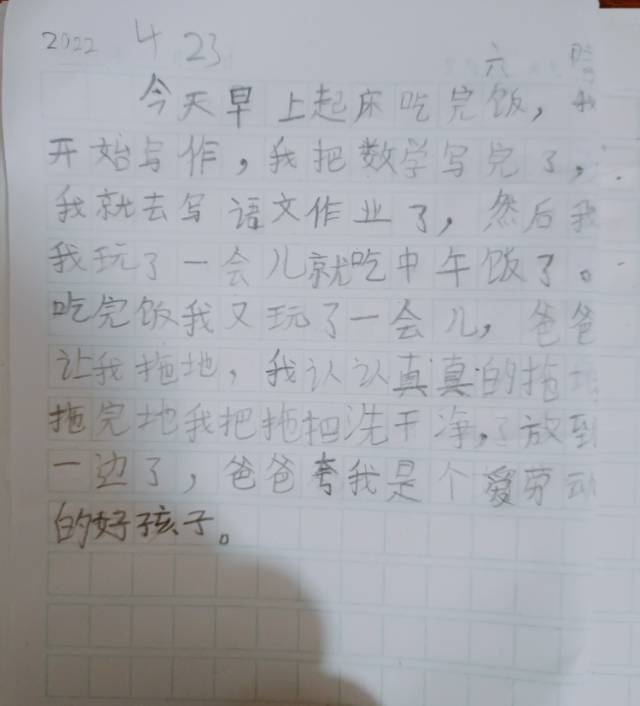 2022 4 23 六
今天早上起床吃完饭，我
开始写作，我把数学写完了，
我就去写语文作业了，然后我
我玩了一会儿就吃中午饭了。
吃完饭我又玩了一会儿，爸爸
让我拖地，我认认真真的拖地
拖完地我把拖把洗干净，了放到
一边了，爸爸夸我是个爱劳动
的好孩子。